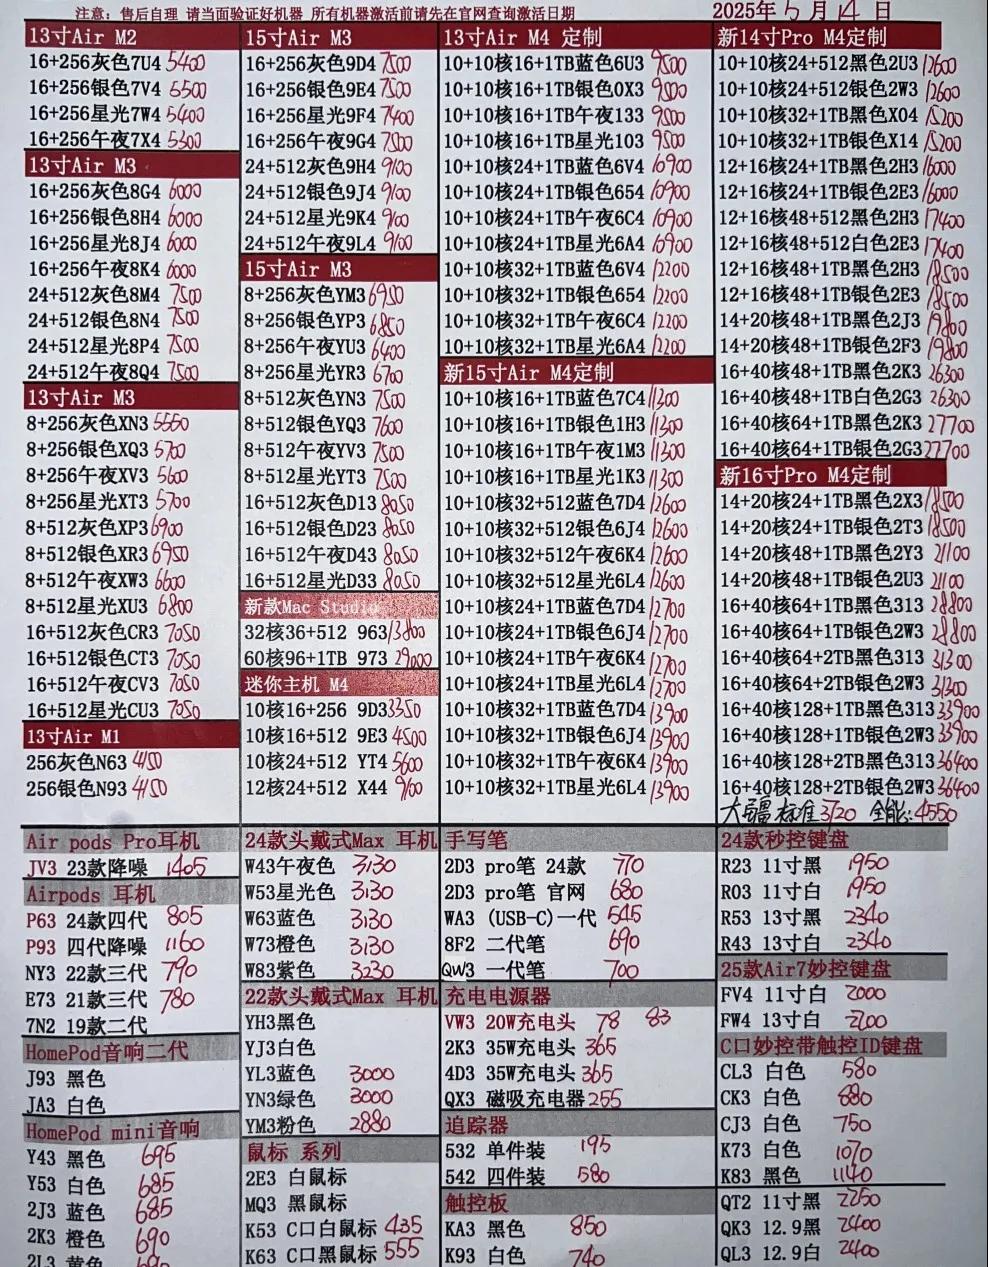 注意：售后自理 请当面验证好机器 所有机器激活前请先在官网查询激活日期
2025年5月14日
13寸Air M2
16+256灰色7U4 5400
16+256银色7V4 5500
16+256星光7W4 5400
16+256午夜7X4 5300
13寸Air M3
16+256灰色8G4 6000
16+256银色8H4 6000
16+256星光8J4 6000
16+256午夜8K4 6000
24+512灰色8M4 7500
24+512银色8N4 7500
24+512星光8P4 7500
24+512午夜8Q4 7500
13寸Air M3
8+256灰色XN3 5550
8+256银色XQ3 5700
8+256午夜XV3 5600
8+256星光XT3 5700
8+512灰色XP3 6900
8+512银色XR3 6950
8+512午夜XW3 6600
8+512星光XU3 6800
16+512灰色CR3 7050
16+512银色CT3 7050
16+512午夜CV3 7050
16+512星光CU3 7050
13寸Air M1
256灰色N63 4150
256银色N93 4150
15寸Air M3
16+256灰色9D4 7500
16+256银色9E4 7500
16+256星光9F4 7400
16+256午夜9G4 7500
24+512灰色9H4 9100
24+512银色9J4 9100
24+512星光9K4 9100
24+512午夜9L4 9100
15寸Air M3
8+256灰色YM3 6950
8+256银色YP3 6850
8+256午夜YU3 6400
8+256星光YR3 6700
8+512灰色YN3 7500
8+512银色YQ3 7600
8+512午夜YV3 7500
8+512星光YT3 7500
16+512灰色D13 8050
16+512银色D23 8050
16+512午夜D43 8050
16+512星光D33 8050
新款Mac Studio
32核36+512 963 13800
60核96+1TB 973 29000
迷你主机 M4
10核16+256 9D3 3350
10核16+512 9E3 4500
10核24+512 YT4 5600
12核24+512 X44 9100
13寸Air M4 定制
10+10核16+1TB蓝色6U3 9500
10+10核16+1TB银色0X3 9500
10+10核16+1TB午夜133 9500
10+10核16+1TB星光103 9500
10+10核24+1TB蓝色6V4 10900
10+10核24+1TB银色654 10900
10+10核24+1TB午夜6C4 10900
10+10核24+1TB星光6A4 10900
10+10核32+1TB蓝色6V4 12200
10+10核32+1TB银色654 12200
10+10核32+1TB午夜6C4 12200
10+10核32+1TB星光6A4 12200
新15寸Air M4定制
10+10核16+1TB蓝色7C4 11300
10+10核16+1TB银色1H3 11300
10+10核16+1TB午夜1M3 11300
10+10核16+1TB星光1K3 11300
10+10核32+512蓝色7D4 12600
10+10核32+512银色6J4 12600
10+10核32+512午夜6K4 12600
10+10核32+512星光6L4 12600
10+10核24+1TB蓝色7D4 12700
10+10核24+1TB银色6J4 12700
10+10核24+1TB午夜6K4 12700
10+10核24+1TB星光6L4 12700
10+10核32+1TB蓝色7D4 13900
10+10核32+1TB银色6J4 13900
10+10核32+1TB午夜6K4 13900
10+10核32+1TB星光6L4 13900
新14寸Pro M4定制
10+10核24+512黑色2U3 12600
10+10核24+512银色2W3 12600
10+10核32+1TB黑色X04 15200
10+10核32+1TB银色X14 15200
12+16核24+1TB黑色2H3 16000
12+16核24+1TB银色2E3 16000
12+16核48+512黑色2H3 17400
12+16核48+512白色2E3 17400
12+16核48+1TB黑色2H3 18500
12+16核48+1TB银色2E3 18500
14+20核48+1TB黑色2J3 19800
14+20核48+1TB银色2F3 19800
16+40核48+1TB黑色2K3 26300
16+40核48+1TB白色2G3 26300
16+40核64+1TB黑色2K3 27700
16+40核64+1TB银色2G3 27700
新16寸Pro M4定制
14+20核24+1TB黑色2X3 18500
14+20核24+1TB银色2T3 18500
14+20核48+1TB黑色2Y3 21100
14+20核48+1TB银色2U3 21100
16+40核64+1TB黑色313 28800
16+40核64+1TB银色2W3 28800
16+40核64+2TB黑色313 31300
16+40核64+2TB银色2W3 31300
16+40核128+1TB黑色313 33900
16+40核128+1TB银色2W3 33900
16+40核128+2TB黑色313 36400
16+40核128+2TB银色2W3 36400
大疆 标准3120 全能:4550
Air pods Pro耳机
JV3 23款降噪 1405
Airpods 耳机
P63 24款四代 805
P93 四代降噪 1160
NY3 22款三代 790
E73 21款三代 780
7N2 19款二代
HomePod音响二代
J93 黑色
JA3 白色
HomePod mini音响
Y43 黑色 695
Y53 白色 685
2J3 蓝色 685
2K3 橙色 690
2L3 黄色 690
24款头戴式Max 耳机
W43午夜色 3130
W53星光色 3130
W63蓝色 3130
W73橙色 3130
W83紫色 3230
22款头戴式Max 耳机
YH3黑色
YJ3白色
YL3蓝色 3000
YN3绿色 3000
YM3粉色 2880
鼠标 系列
2E3 白鼠标
MQ3 黑鼠标
K53 C口白鼠标 435
K63 C口黑鼠标 555
手写笔
2D3 pro笔 24款 770
2D3 pro笔 官网 680
WA3 (USB-C)一代 545
8F2 二代笔 690
QW3 一代笔 700
充电电源器
VW3 20W充电头 78 83
2K3 35W充电头 365
4D3 35W充电头 365
QX3 磁吸充电器 255
追踪器
532 单件装 195
542 四件装 580
触控板
KA3 黑色 850
K93 白色 740
24款秒控键盘
R23 11寸黑 1950
R03 11寸白 1950
R53 13寸黑 2340
R43 13寸白 2340
25款Air7妙控键盘
FV4 11寸白 2000
FW4 13寸白 2200
C口妙控带触控ID键盘
CL3 白色 580
CK3 白色 880
CJ3 白色 750
K73 白色 1070
K83 黑色 1140
QT2 11寸黑 2250
QK3 12.9黑 2400
QL3 12.9白 2400